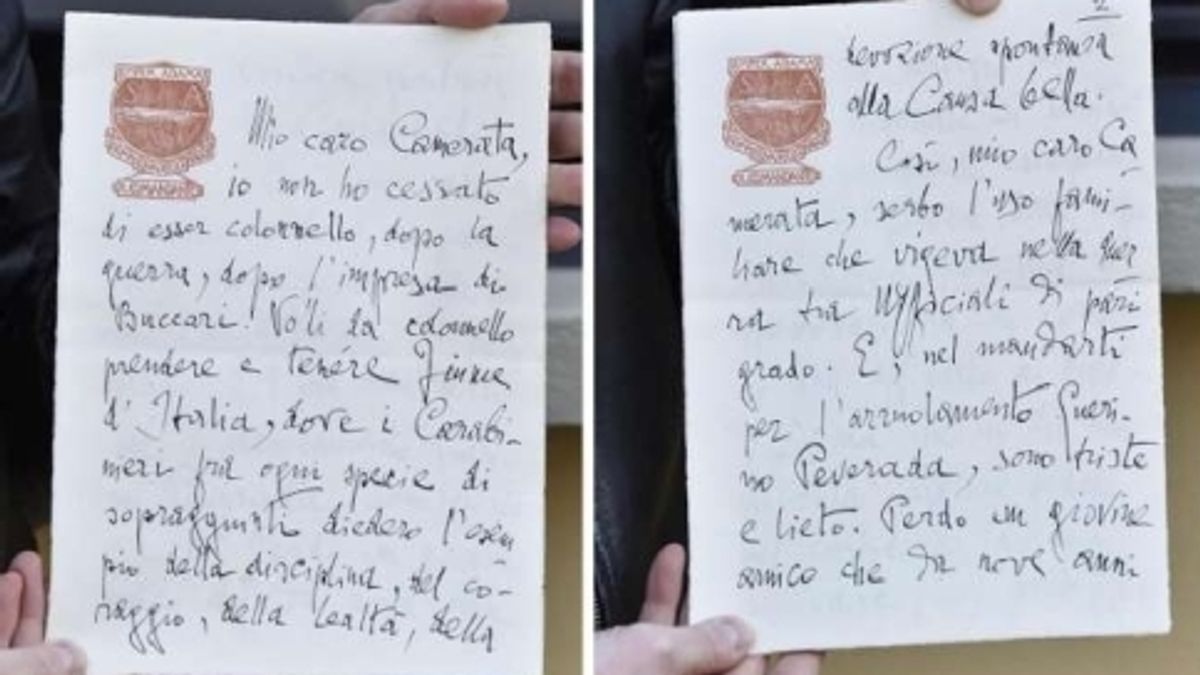 Mio caro Camerata,
io non ho cessato
di esser colonnello, dopo la
guerra, dopo l'impresa di
Buccari. Volli da colonnello
prendere e tenére Fiume
d'Italia, dove i Carabi-
nieri fra ogni specie di
sopraggiunti diedero l'esem
pio della disciplina, del co-
raggio, della lealtà, della
2
devozione spontanea
alla Causa bella.
Così, mio caro Ca
merata, serbo l'uso fami-
liare che vigeva nella guer
ra tra Ufficiali di pari
grado. E, nel mandarti
per l'arruolamento Gueri-
no Peverada, sono triste
e lieto. Perdo un giovine
amico che da nove anni